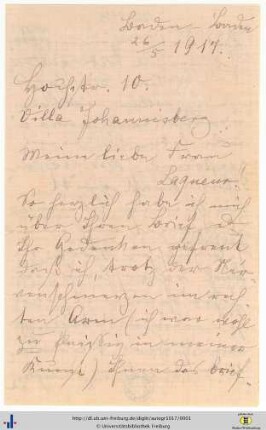 Baden Baden
26/5 1917.
Hochstr. 10.
Villa Johannisberg.
Meine liebe Frau
Laqueur!
So herzlich habe ich mich
über Ihren Brief u
Ihr Gedenken gefreut
daß ich, trotz der Ner-
venschmerzen im rech
ten Arm (ich war wohl
zu fleißig in meiner
Kunst) Ihnen das Brief-
http://dl.ub.uni-freiburg.de/diglit/autogr1017/0001
© Universitätsbibliothek Freiburg